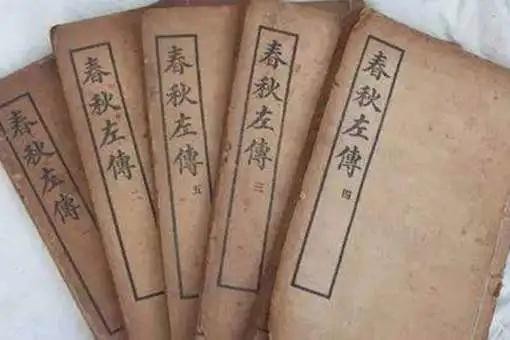 春秋左傳一
春秋左傳二
春秋左傳五
春秋左傳三
春秋左傳四